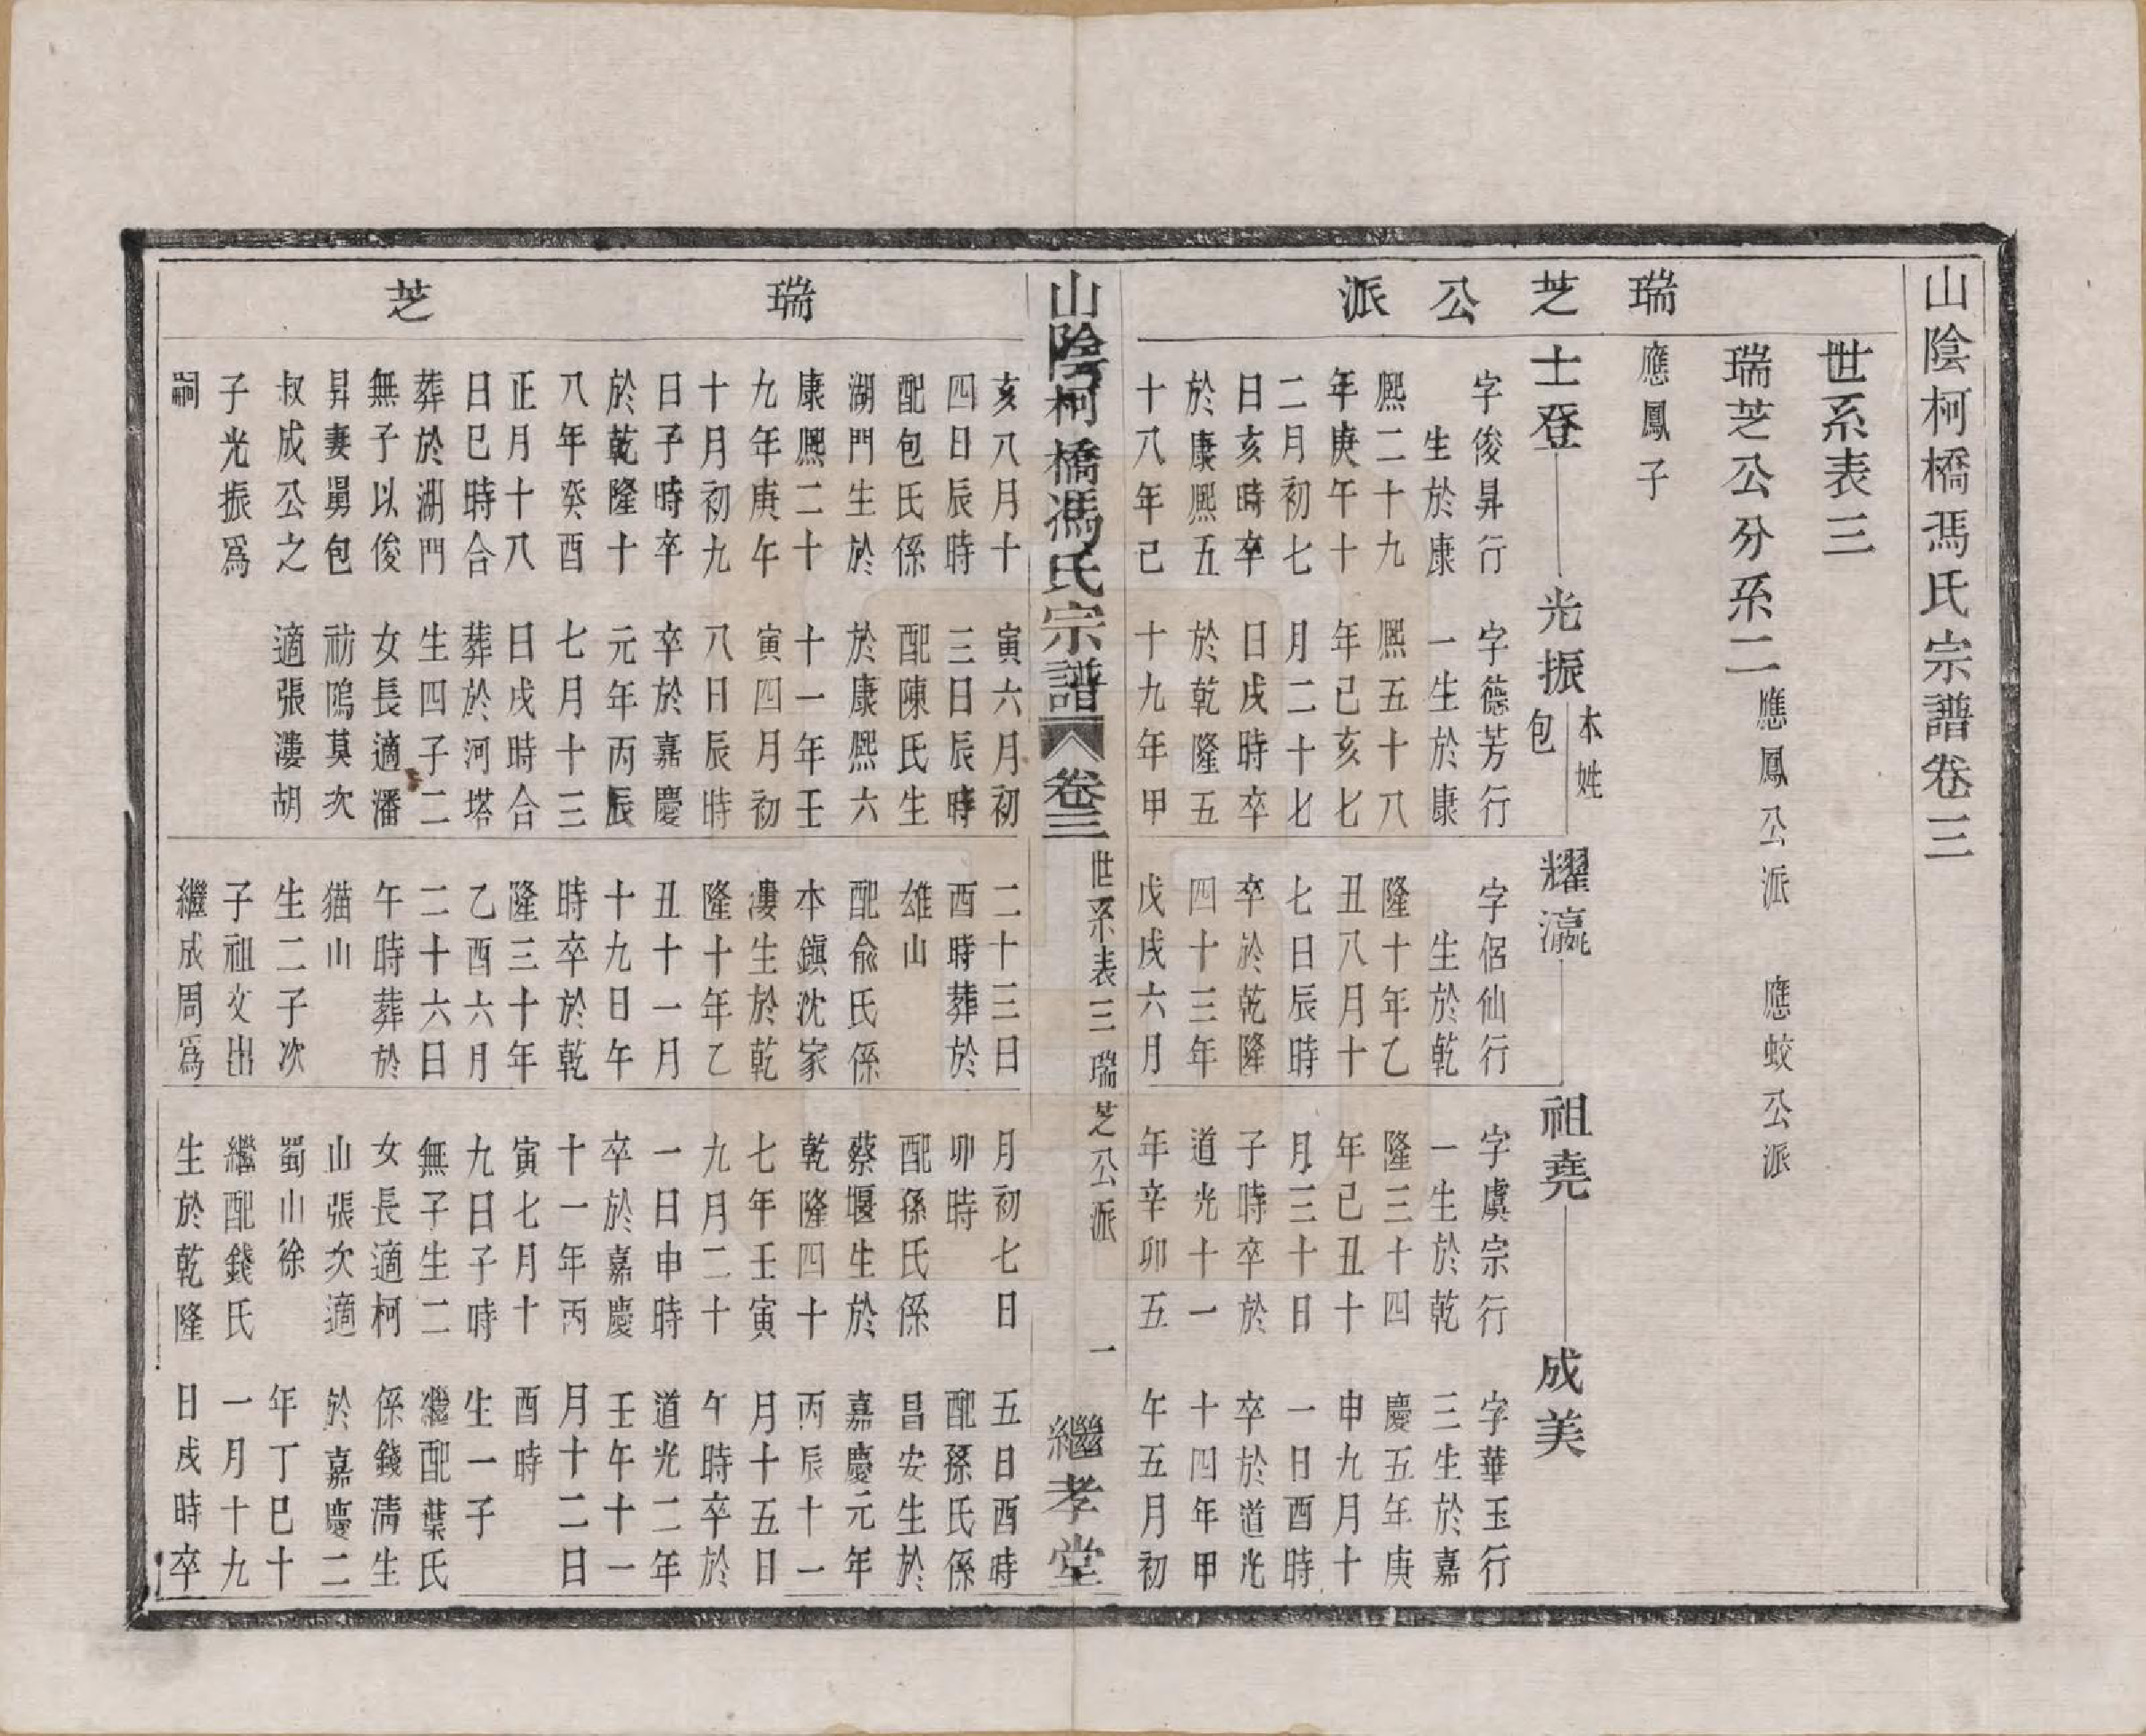 山陰柯橋馮氏宗譜卷三
世系表三
瑞芝公分系二
應鳳公派 應蛟公派
瑞芝公派
應鳳子
士登
光振
本姓
包
耀瀛
祖堯
成美
字俊昇行
生於康
熈二十九
年庚午十
二月初七
日亥時卒
於康熈五
十八年己
字德芳行
一生於康
熈五十八
年己亥七
月二十七
日戌時卒
於乾隆五
十九年甲
字侶仙行
生於乾
隆十年乙
丑八月十
七日辰時
卒於乾隆
四十三年
戊戌六月
字虞宗行
一生於乾
隆三十四
年己丑十
月三十日
子時卒於
道光十一
年辛卯五
字華玉行
三生於嘉
慶五年庚
申九月十
一日酉時
卒於道光
十四年甲
午五月初
山陰柯橋馮氏宗譜
卷三
世系表三 瑞芝公派
一
繼孝堂
瑞芝
亥八月十
四日辰時
配包氏係
湖門生於
康熈二十
九年庚午
十月初九
日子時卒
於乾隆十
八年癸酉
正月十八
日巳時合
葬於湖門
無子以俊
昇妻舅包
叔成公之
子光振爲
嗣
寅六月初
三日辰時
配陳氏生
於康熈六
十一年壬
寅四月初
八日辰時
卒於嘉慶
元年丙辰
七月十三
日戌時合
葬於河塔
生四子二
女長適潘
祊隖莫次
適張漊胡
二十三日
酉時葬於
雄山
配兪氏係
本鎭沈家
漊生於乾
隆十年乙
丑十一月
十九日午
時卒於乾
隆三十年
乙酉六月
二十六日
午時葬於
猫山
生二子次
子祖文出
繼成周爲
月初七日
卯時
配孫氏係
蔡堰生於
乾隆四十
七年壬寅
九月二十
一日申時
卒於嘉慶
十一年丙
寅七月十
九日子時
無子生二
女長適柯
山張次適
蜀山徐
繼配錢氏
生於乾隆
五日酉時
配孫氏係
昌安生於
嘉慶元年
丙辰十一
月十五日
午時卒於
道光二年
壬午十一
月十二日
酉時
生一子
繼配葉氏
係錢淸生
於嘉慶二
年丁巳十
一月十九
日戌時卒